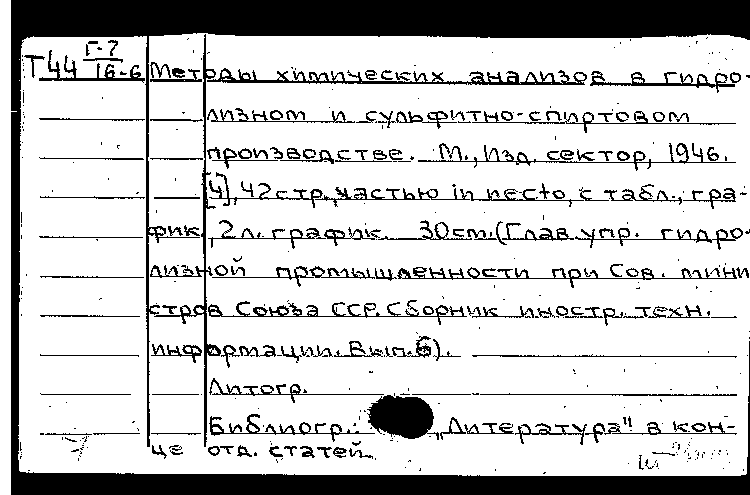 Т44 Г-7
16-6
Методы химических анализов в гидро-
лизном и сульфитно-спиртовом
производстве. М., Изд. сектор, 1946.
[4], 42 стр., частью in necto, с табл., гра-
фик., 2 л. график. 30 см. (Глав. упр. гидро-
лизной промышленности при Сов. мини
стров Союза ССР. Сборник иностр. техн.
информации. Вып. 6).
Литогр.
Библиогр.: „Литература" в кон-
це отд. статей